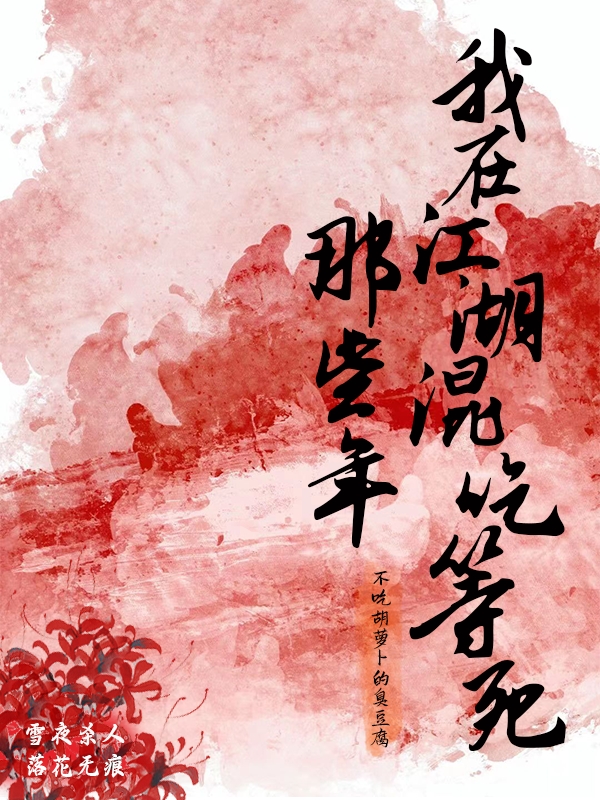 我在江湖混吃等死
那些年
不吃胡萝卜的臭豆腐
雪夜杀人
落花无痕